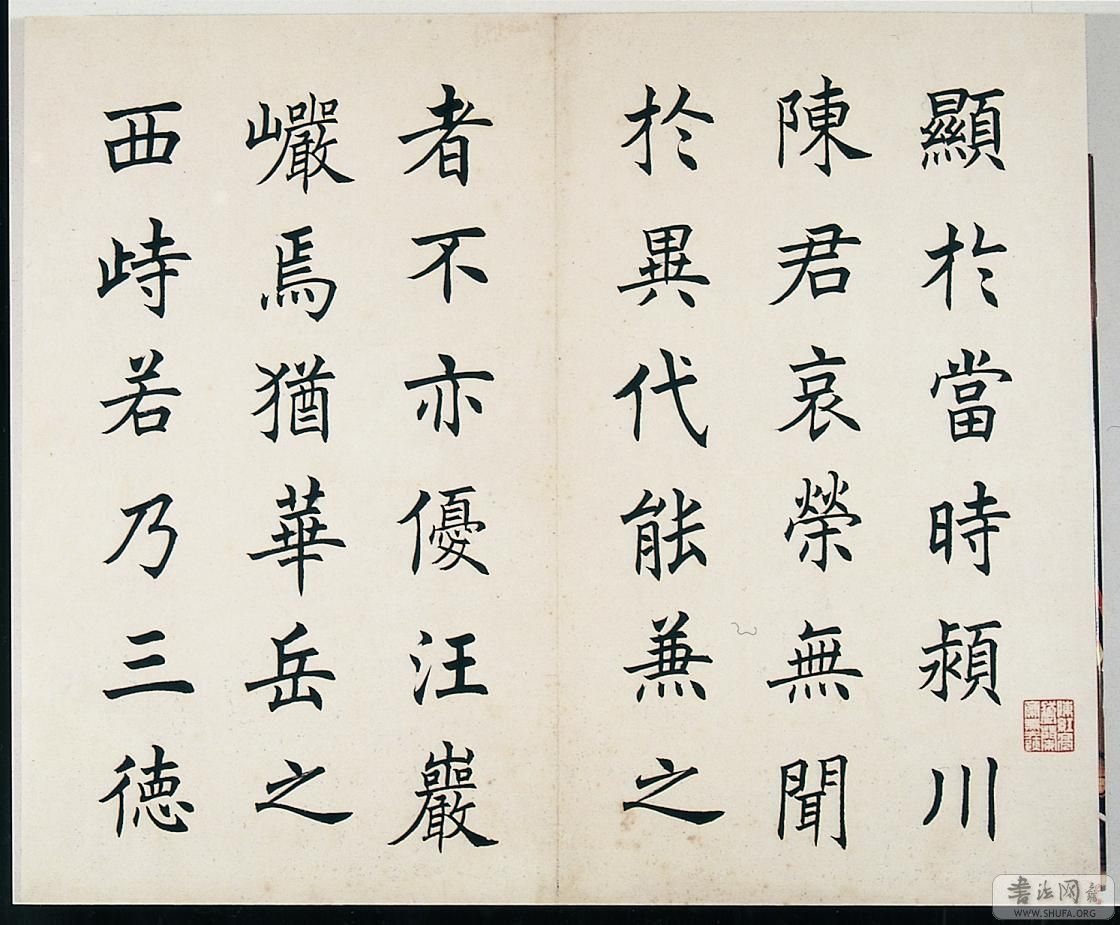 顯於當時潁川
陳君哀榮無聞
於異代能兼之
者不亦優汪巖
巗焉猶華岳之
西峙若乃三徳
書法网
WWW.SHUFA.ORG